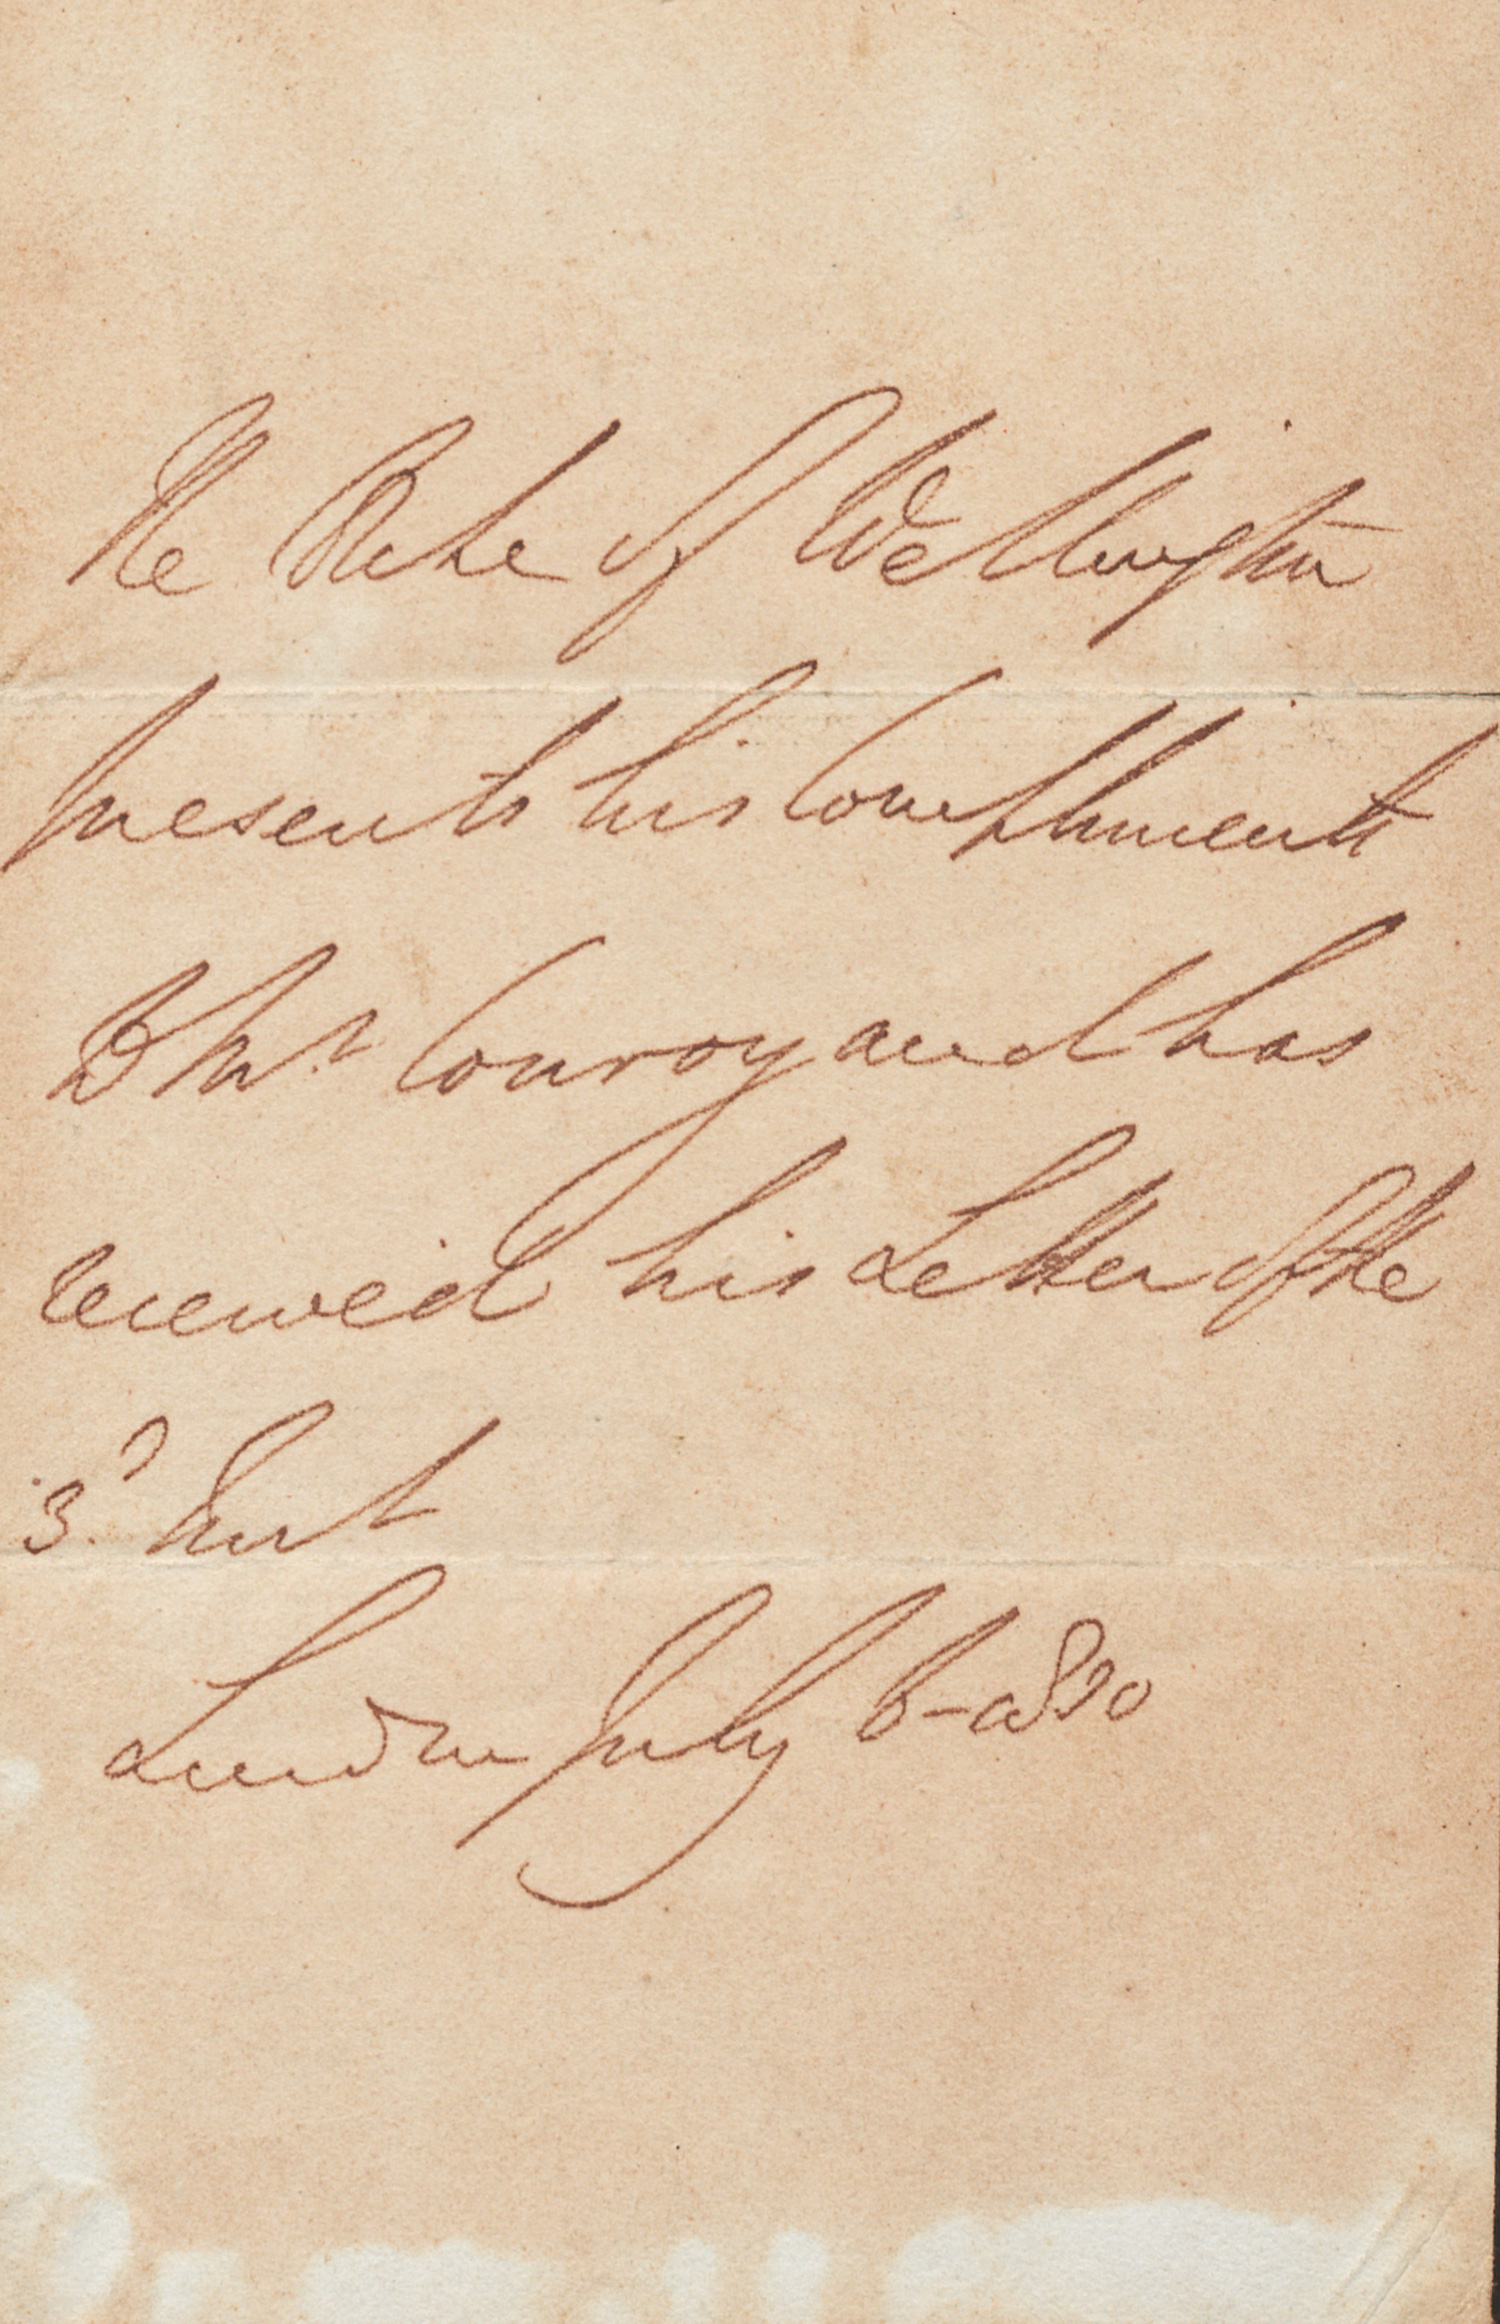 The Duke of Wellington
presents his Compliments
to Mr. Conroy and has
received his Letter of the
3d. Inst
London July 6 - 1830